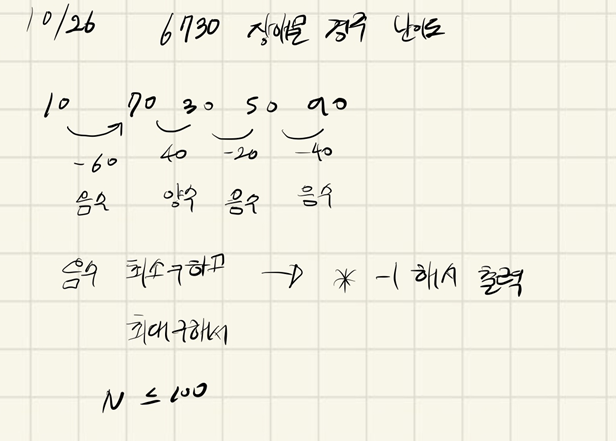 10/26 6730 장애물 경주 난이도
10 70 30 50 90
-60 40 -20 -40
음수 양수 음수 음수
음수 최소구하고 → * -1 해서 출력
최대구해서
N ≤ 100